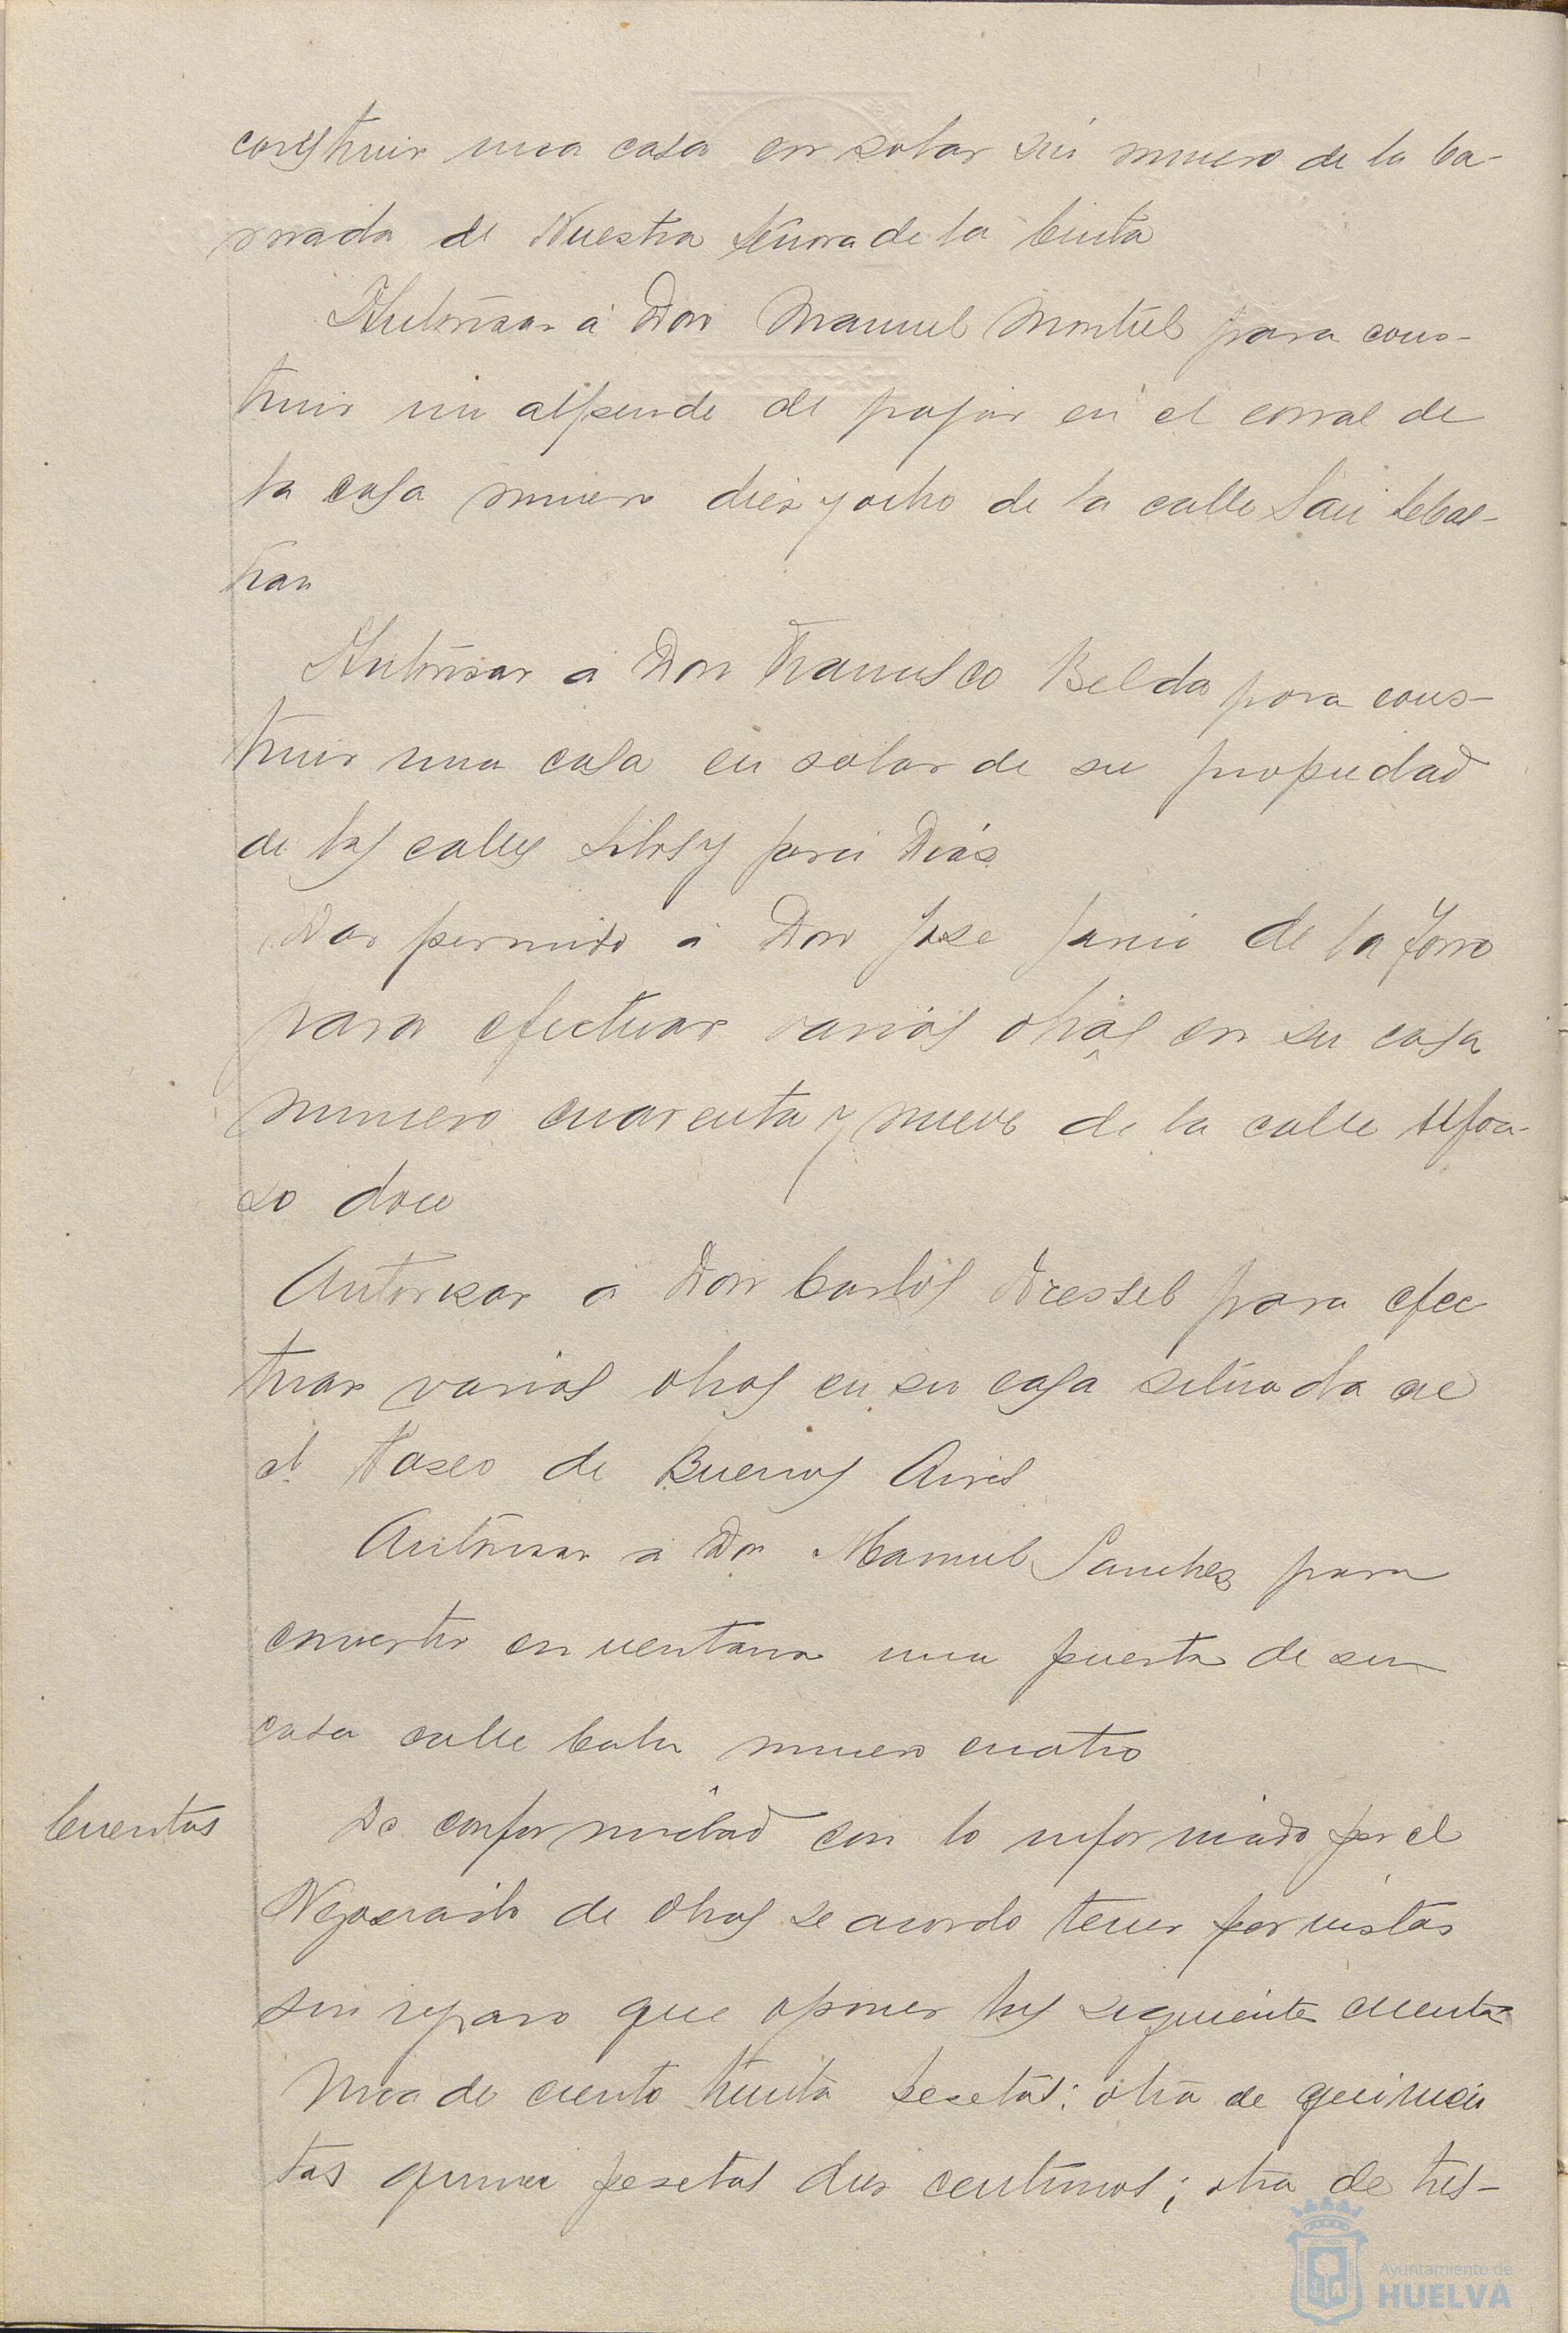 construir una casa en solar sin numero de la ba-
rriada de Nuestra Señora de la Cinta
Autorisar á Don Manuel Montiel para cons-
truir un alpende de pajar en el corral de
la casa numero diez y ocho de la calle San Sebas-
tian
Autorisar á Don Francisco Belda para cons-
truir una casa en solar de su propiedad
de las calles Silos y Diás
Dar permiso á Don Jose Garcia de la Torre
para efectuar varias obras en su casa
numero cuarenta y nueve de la calle Alfon-
so doce
Autorisar á Don Carlos Dressel para efec
tuar varias obras en su casa situada en
el Paseo de Buenos Aires
Autorisar á Don Manuel Sanchez para
convertir en ventana una puerta de su
casa calle Cala numero cuatro
Cuentas
De conformidad con lo informado por el
Negociado de Obras se acordo tener por vistas
sin reparo que oponer las siguientes cuentas
Una de ciento treinta pesetas; otra de quinien
tas quince pesetas dies centimos; otra de tres-
Ayuntamiento de
HUELVA